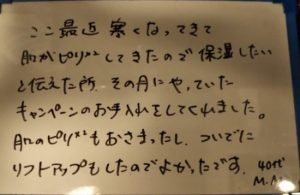 ここ最近寒くなってきて
肌がピリピリしてきたので保湿したい
と伝えた所、その月にやっていた
キャンペーンのお手入れをしてくれました。
肌のピリピリもおさまったし、ついでに
リフトアップもしたのでよかったです。40代
M.A